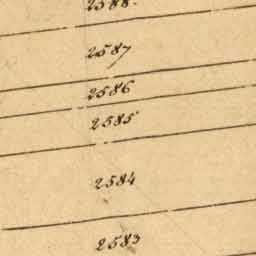 2588.
2587
2586
2585
2584
2583